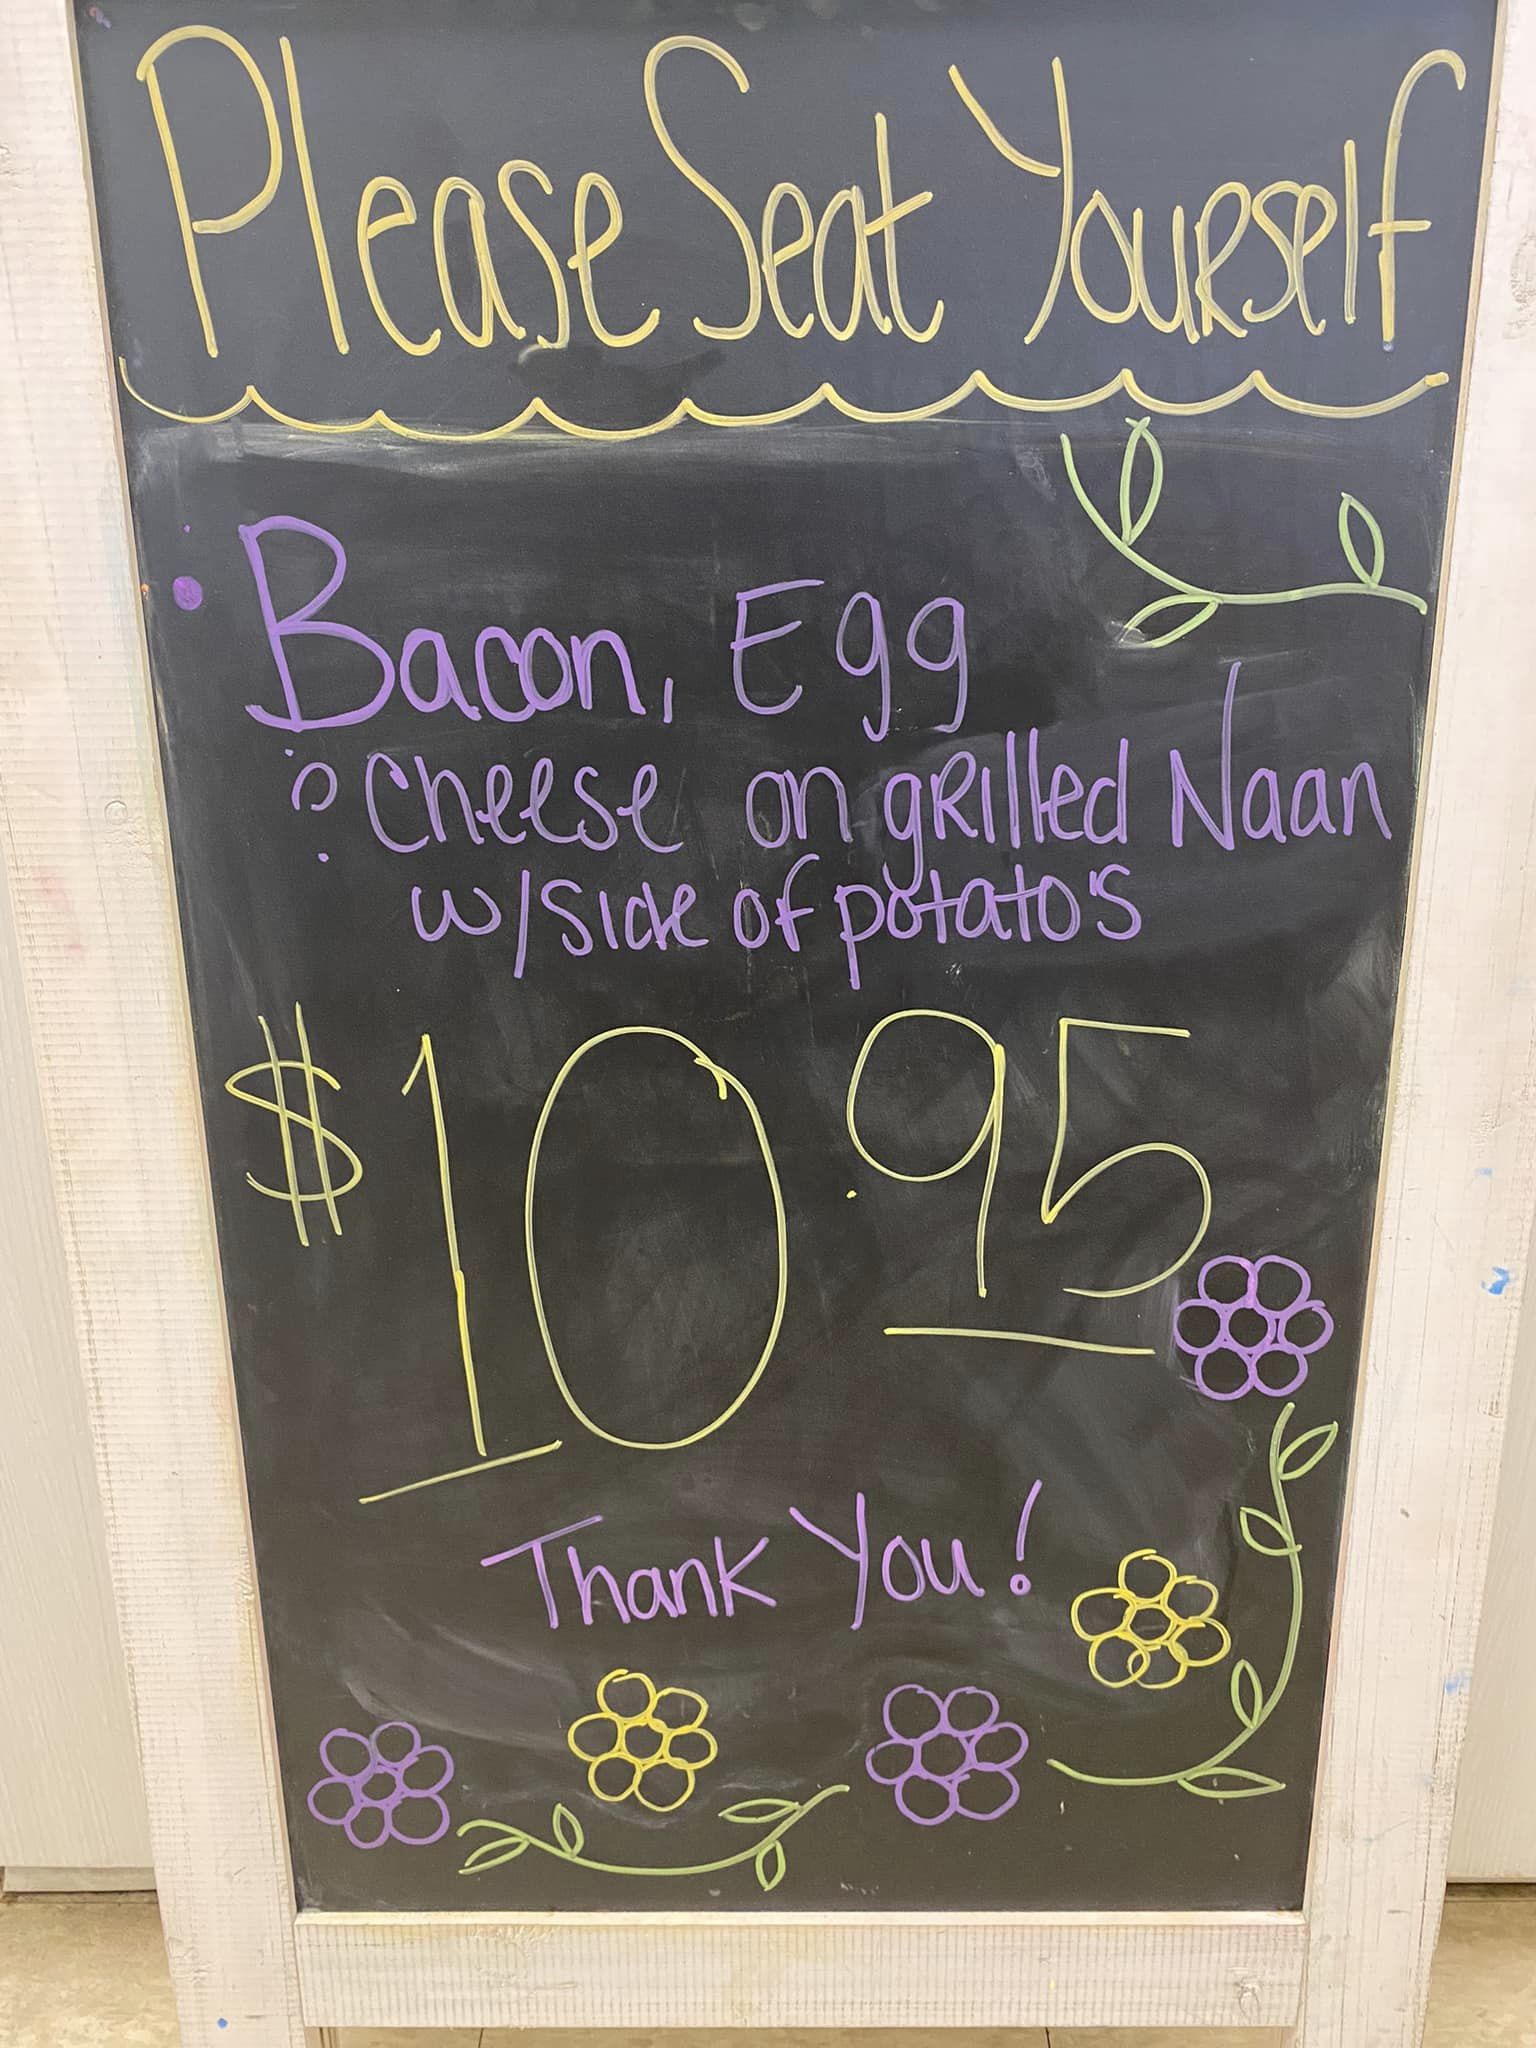 Please Seat Yourself
• Bacon, Egg
& Cheese on grilled Naan
w/ side of potato's
$10.95
Thank You!